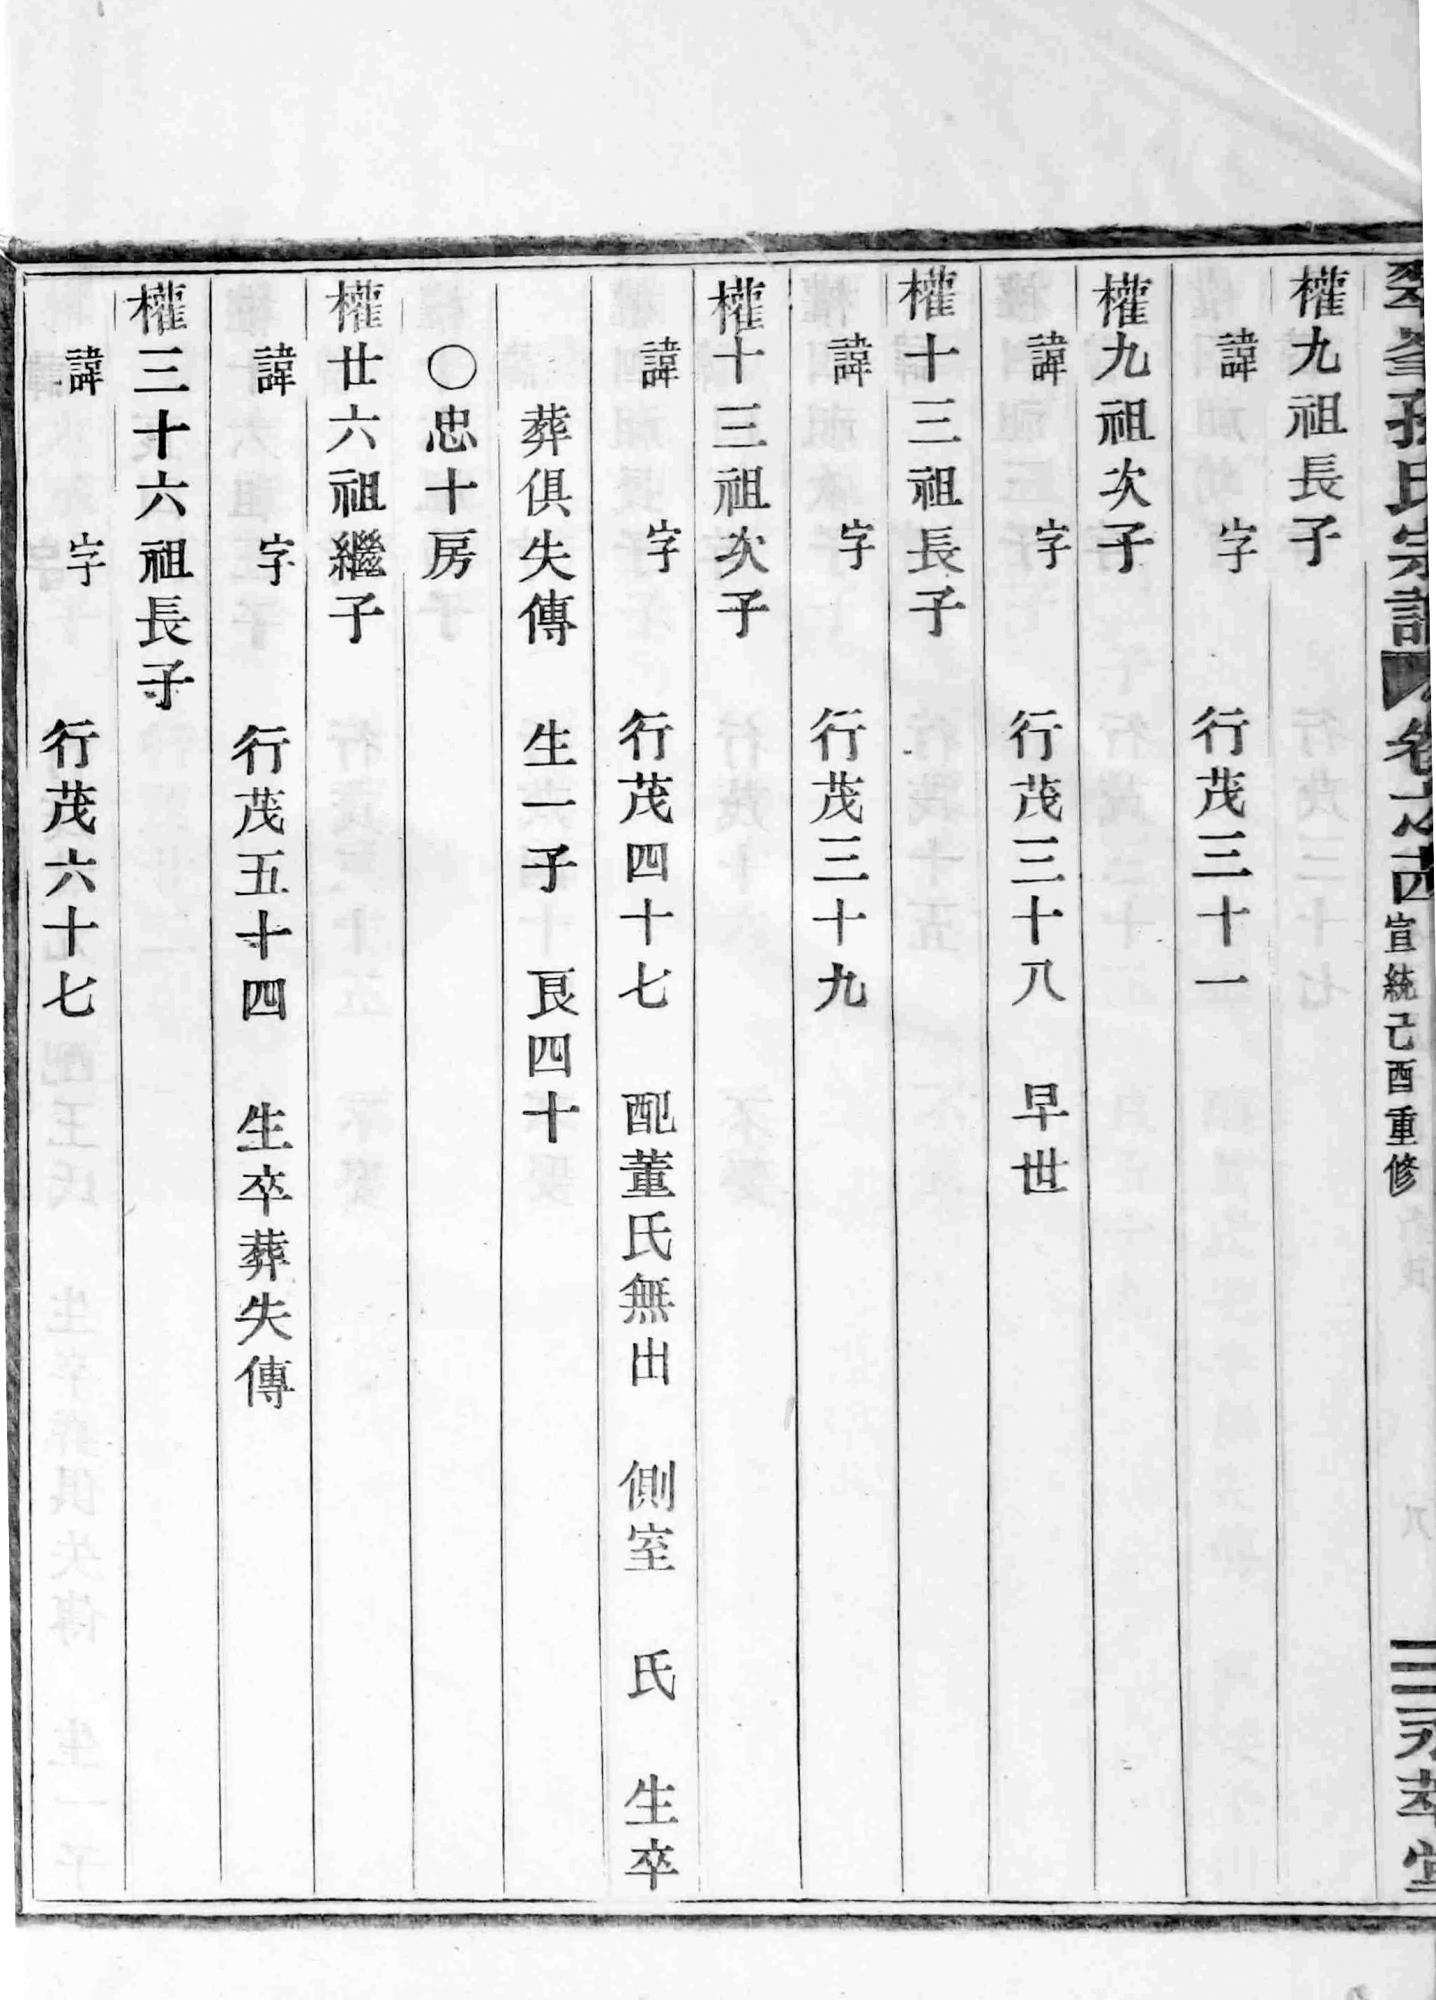 孫氏宗譜 卷之四 宣統己酉重修
權九祖長子
諱 字 行茂三十一
權九祖次子
諱 字 行茂三十八 早世
權十三祖長子
諱 字 行茂三十九
權十三祖次子
諱 字 行茂四十七 配董氏無出 側室 氏 生卒
葬俱失傳 生一子 良四十
〇忠十房
權廿六祖繼子
諱 字 行茂五十四 生卒葬失傳
權三十六祖長子
諱 字 行茂六十七